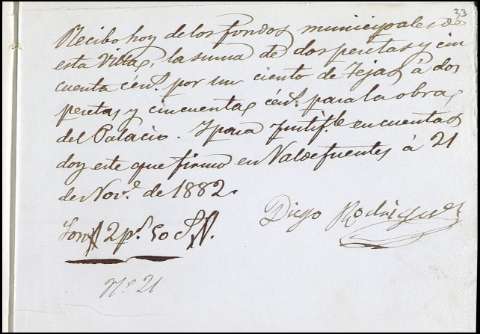 33
Recibo hoy de los fondos municipales de
esta Villa, la suma de dos pesetas y cin
cuenta cént. por un ciento de Tejas á dos
pesetas y cincuenta cént. para la obra
del Palacio. Y para Justif.le en cuentas
doy este que firmo en Valdefuentes á 21
de Nov.e de 1882.
Diego Rodriguez
Son 2 p.s 50
Nº 21